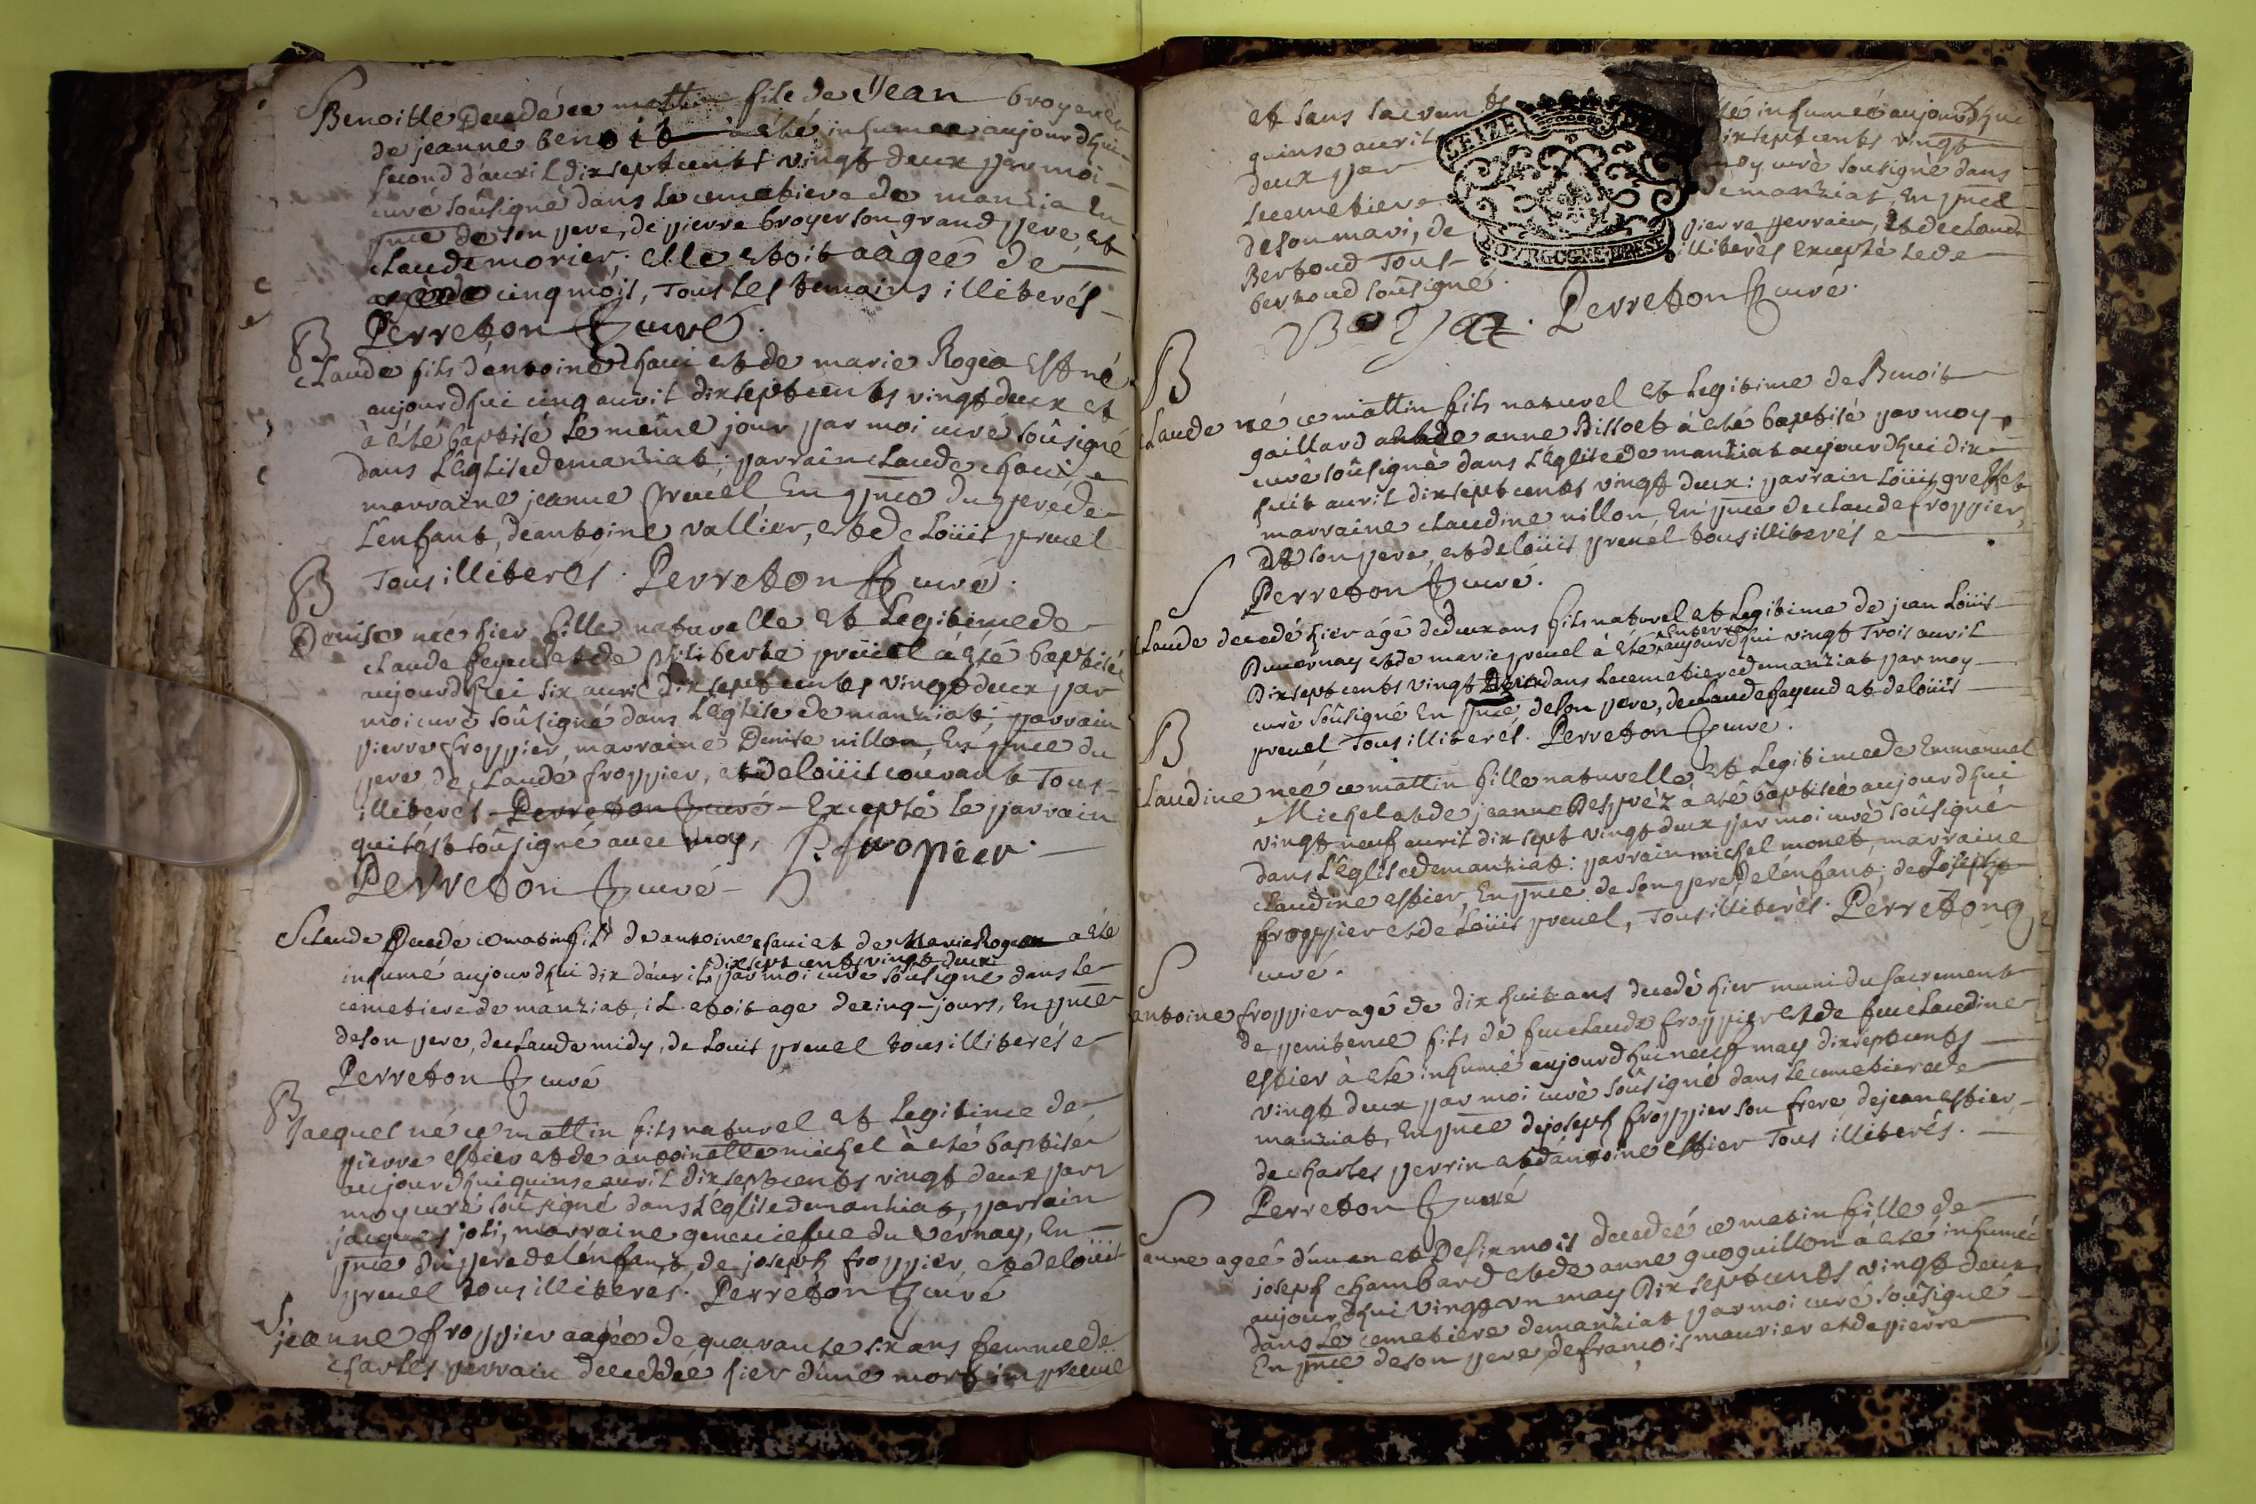 S
Benoitte Decedée ce mattin fille de Jean broyer et
de jeanne benoit a eté inhumee aujourdhui
second d'avril dixsept cents vingt deux par moi
curé soûsigné dans le cemetiere de manzia En
pnce de son pere, de pierre broyer son grand pere, et
claude morier; elle etoit aàgeê de
cinq moîs, Tous les temoins illiterés
Perreton curé.
B
Claude fils d'antoine chavi et de marie Rogea Est né
aujourdhui cinq avril dixsept cents vingt deux et
à eté baptisé le même jour par moi curé soûsigné
dans L'Eglise de manziat; parrain claude chavi
marraine jeanne pruel En pnce du pere de
L'enfant, de antoine vallier, et de Loüis pruel
Tous illiterés. Perreton curé.
B
Denise neé hier fille naturelle et Legitime de
claude feyeul et de philiberte prüel à eté baptisée
aujourdhui six avril dixsept cents vingt deux par
moi curé soûsigné dans L'eglise de manziat; parrain
pierre froppier, marraine Denise nillon, En pnce du
pere, de claude froppier, et de loüis courant Tous
illiterés Perreton curé Excepté le parrain
qui s'est soûsigné avec moy, P. fropier
Perreton curé
S
Claude Decedé ce matin fils de antoine chavi et de Marie Rogea a eté
dixsept cents vingt deux
inhumé aujourdhui dix d'avril par moi curé soûsigné dans le
cemetiere de manziat, il etoit age de cinq jours, En pnce
de son pere, de claude midy, de Louis pruel tous illiterés
Perreton curé
B
Jacques né ce mattin fils naturel et Legitime de
pierre estier et de antoinette michel à eté baptisé
aujourdhui quinse avril dixsept cents vingt deux par
moy curé soûsigné dans L'église de manziat, parrain
jacques joli, marraine geneviefve du vernay, En
pnce du pere de lénfant, de joseph froppier, et de loüis
pruel tous illiterés. Perreton curé
S
jeanne froppier aageê de quarante six ans femme de
charles perrain decedeé hier d'une mort imprevüe
et sans sacrem ts
té inhumeé aujourdhui
quinse avril
dixsept cents vingt
deux par
moy curé soûsigné dans
le cemetiere
de manziat, En pnce
de son mari, de
pierre perrain, et de claude
Bertoud Tous
illiterés Excepté le de
bertoud soûsigné.
SEIZE DENIERS
BOURGOGNE BRESSE
Perreton curé.
B
Claude né ce mattin fils naturel et Legitime de Benoit
gaillard et de anne Bissoet à eté baptisé par moy
curé soûsigné dans L'Eglise de manziat aujourdhui dix
huit avril dixsept cents vingt deux: parrain Loüis greffet
marraine claudine nillon, En pnce de claude froppier,
de son pere, et de loüis pruel tous illiterés
Perreton curé.
S
Claude decedé hier âgé de deux ans fils naturel et Legitime de jean Loüis
Enterré
Duvernay et de marie pruel à eté aujourdhui vingt Trois avril
Dixsept cents vingt deux dans le cemetiere de manziat par moy
curé soûsigné En pnce de son pere, de claude feyeud et de loüis
pruel Tous illiterés. Perreton curé.
B
Claudine neé ce mattin fille naturelle et Legitime de Emmanuel
Michel et de jeanne Despréz à eté baptisée aujourdhui
vingt neuf avril dix sept vingt deux par moi curé soûsigné
dans L'Eglise de manziat: parrain michel monet, marraine
claudine estier, En pnce de son pere De lénfant; de Joseph
froppier et de Loüis pruel, Tous illiterés. Perreton
curé.
S
antoine froppier agé de dix huit ans decedé hier muni du sacrement
de penitence fils de feu claude froppier et de feu claudine
estier à eté inhumé aujourdhui neuf may dixsept cents
vingt deux par moi curé soûsigné dans le cemetiere de
manziat, En pnce de joseph froppier son frere de jean estier,
de charles perrin et d'antoine estier Tous illiterés.
Perreton curé
S
anne ageé d'un an et De six mois decedeé ce matin fille de
joseph chambard et de anne guoguillon à eté inhumée
aujourdhui vingt vn may Dixsept cents vingt deux
dans le cemetiere de manziat par moi curé soûsigné
En pnce de son pere, de françois maurier et de pierre